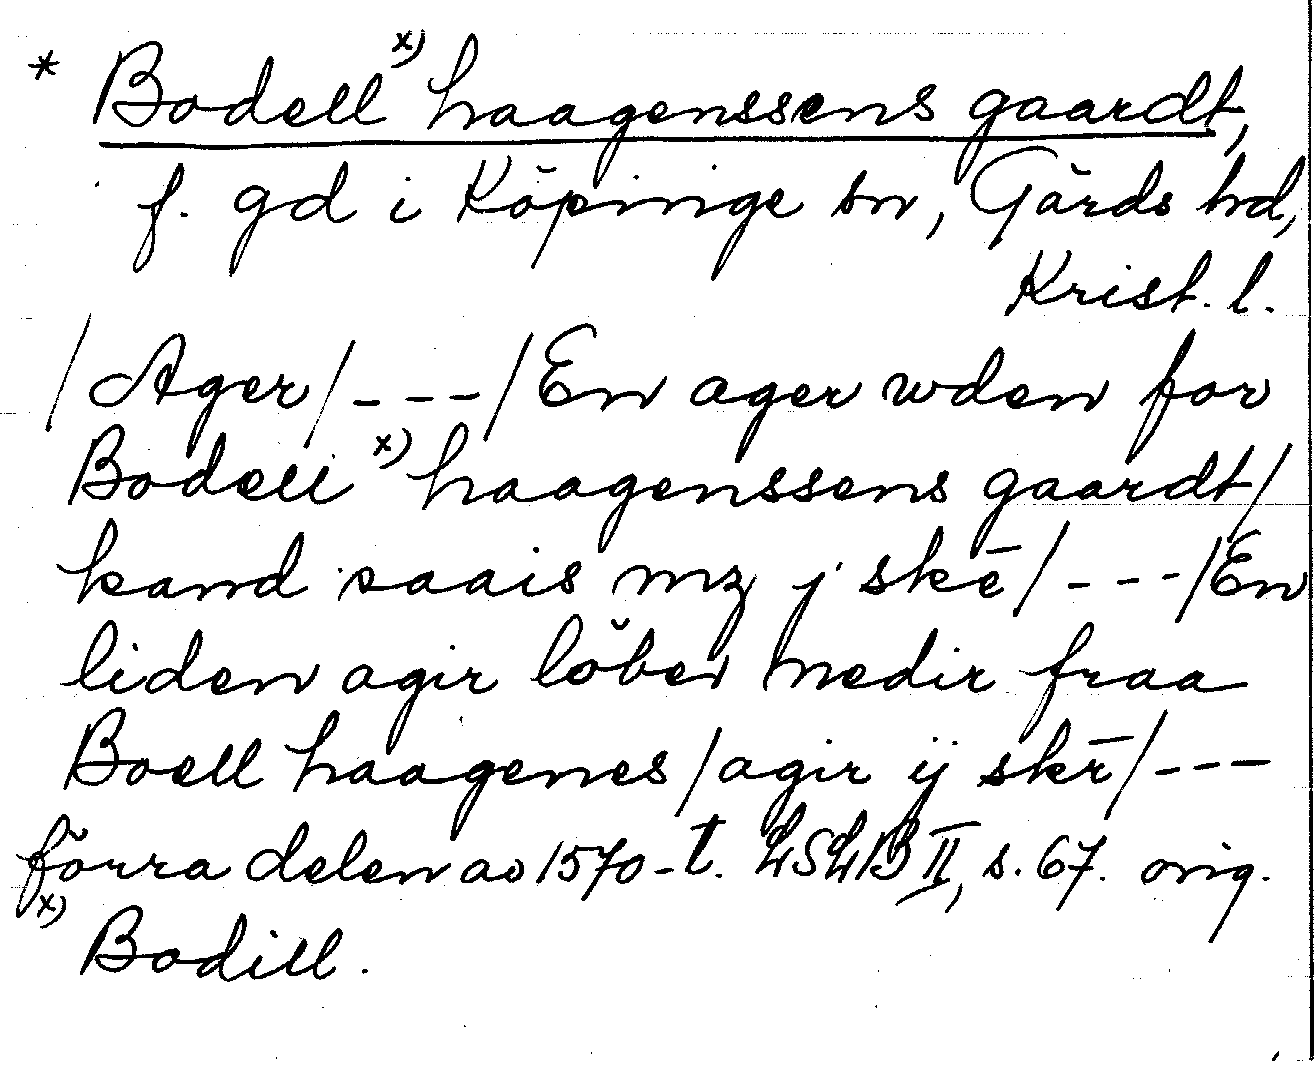 * Bodell x) haagenssens gaardt,
f. gd i Köpinge sn, Gärds hd,
Krist. l.
/Ager/---/En ager wden for
Bodell x) haagenssens gaardt/
kand saais mz j skē/---/En
liden agir löber nedir fraa
Boell haagenes/agir ij skē/---
förra delen av 1570-t. LSLB II, s. 67. orig.
x) Bodill.